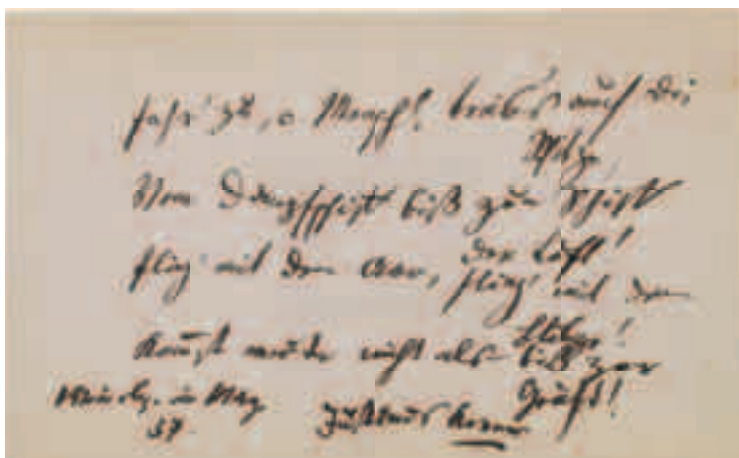 Fahr' zu, o Mensch! treib's auf die
Spitze,
Vom Dampfschiff biß zum Schiff
der Luft!
flieg mit dem Aar, flieg' mit dem
Blitze!
Kom̄st weiter nicht als biß zur
Gruft!
Weinsb. im May
37
Justinus Kerner